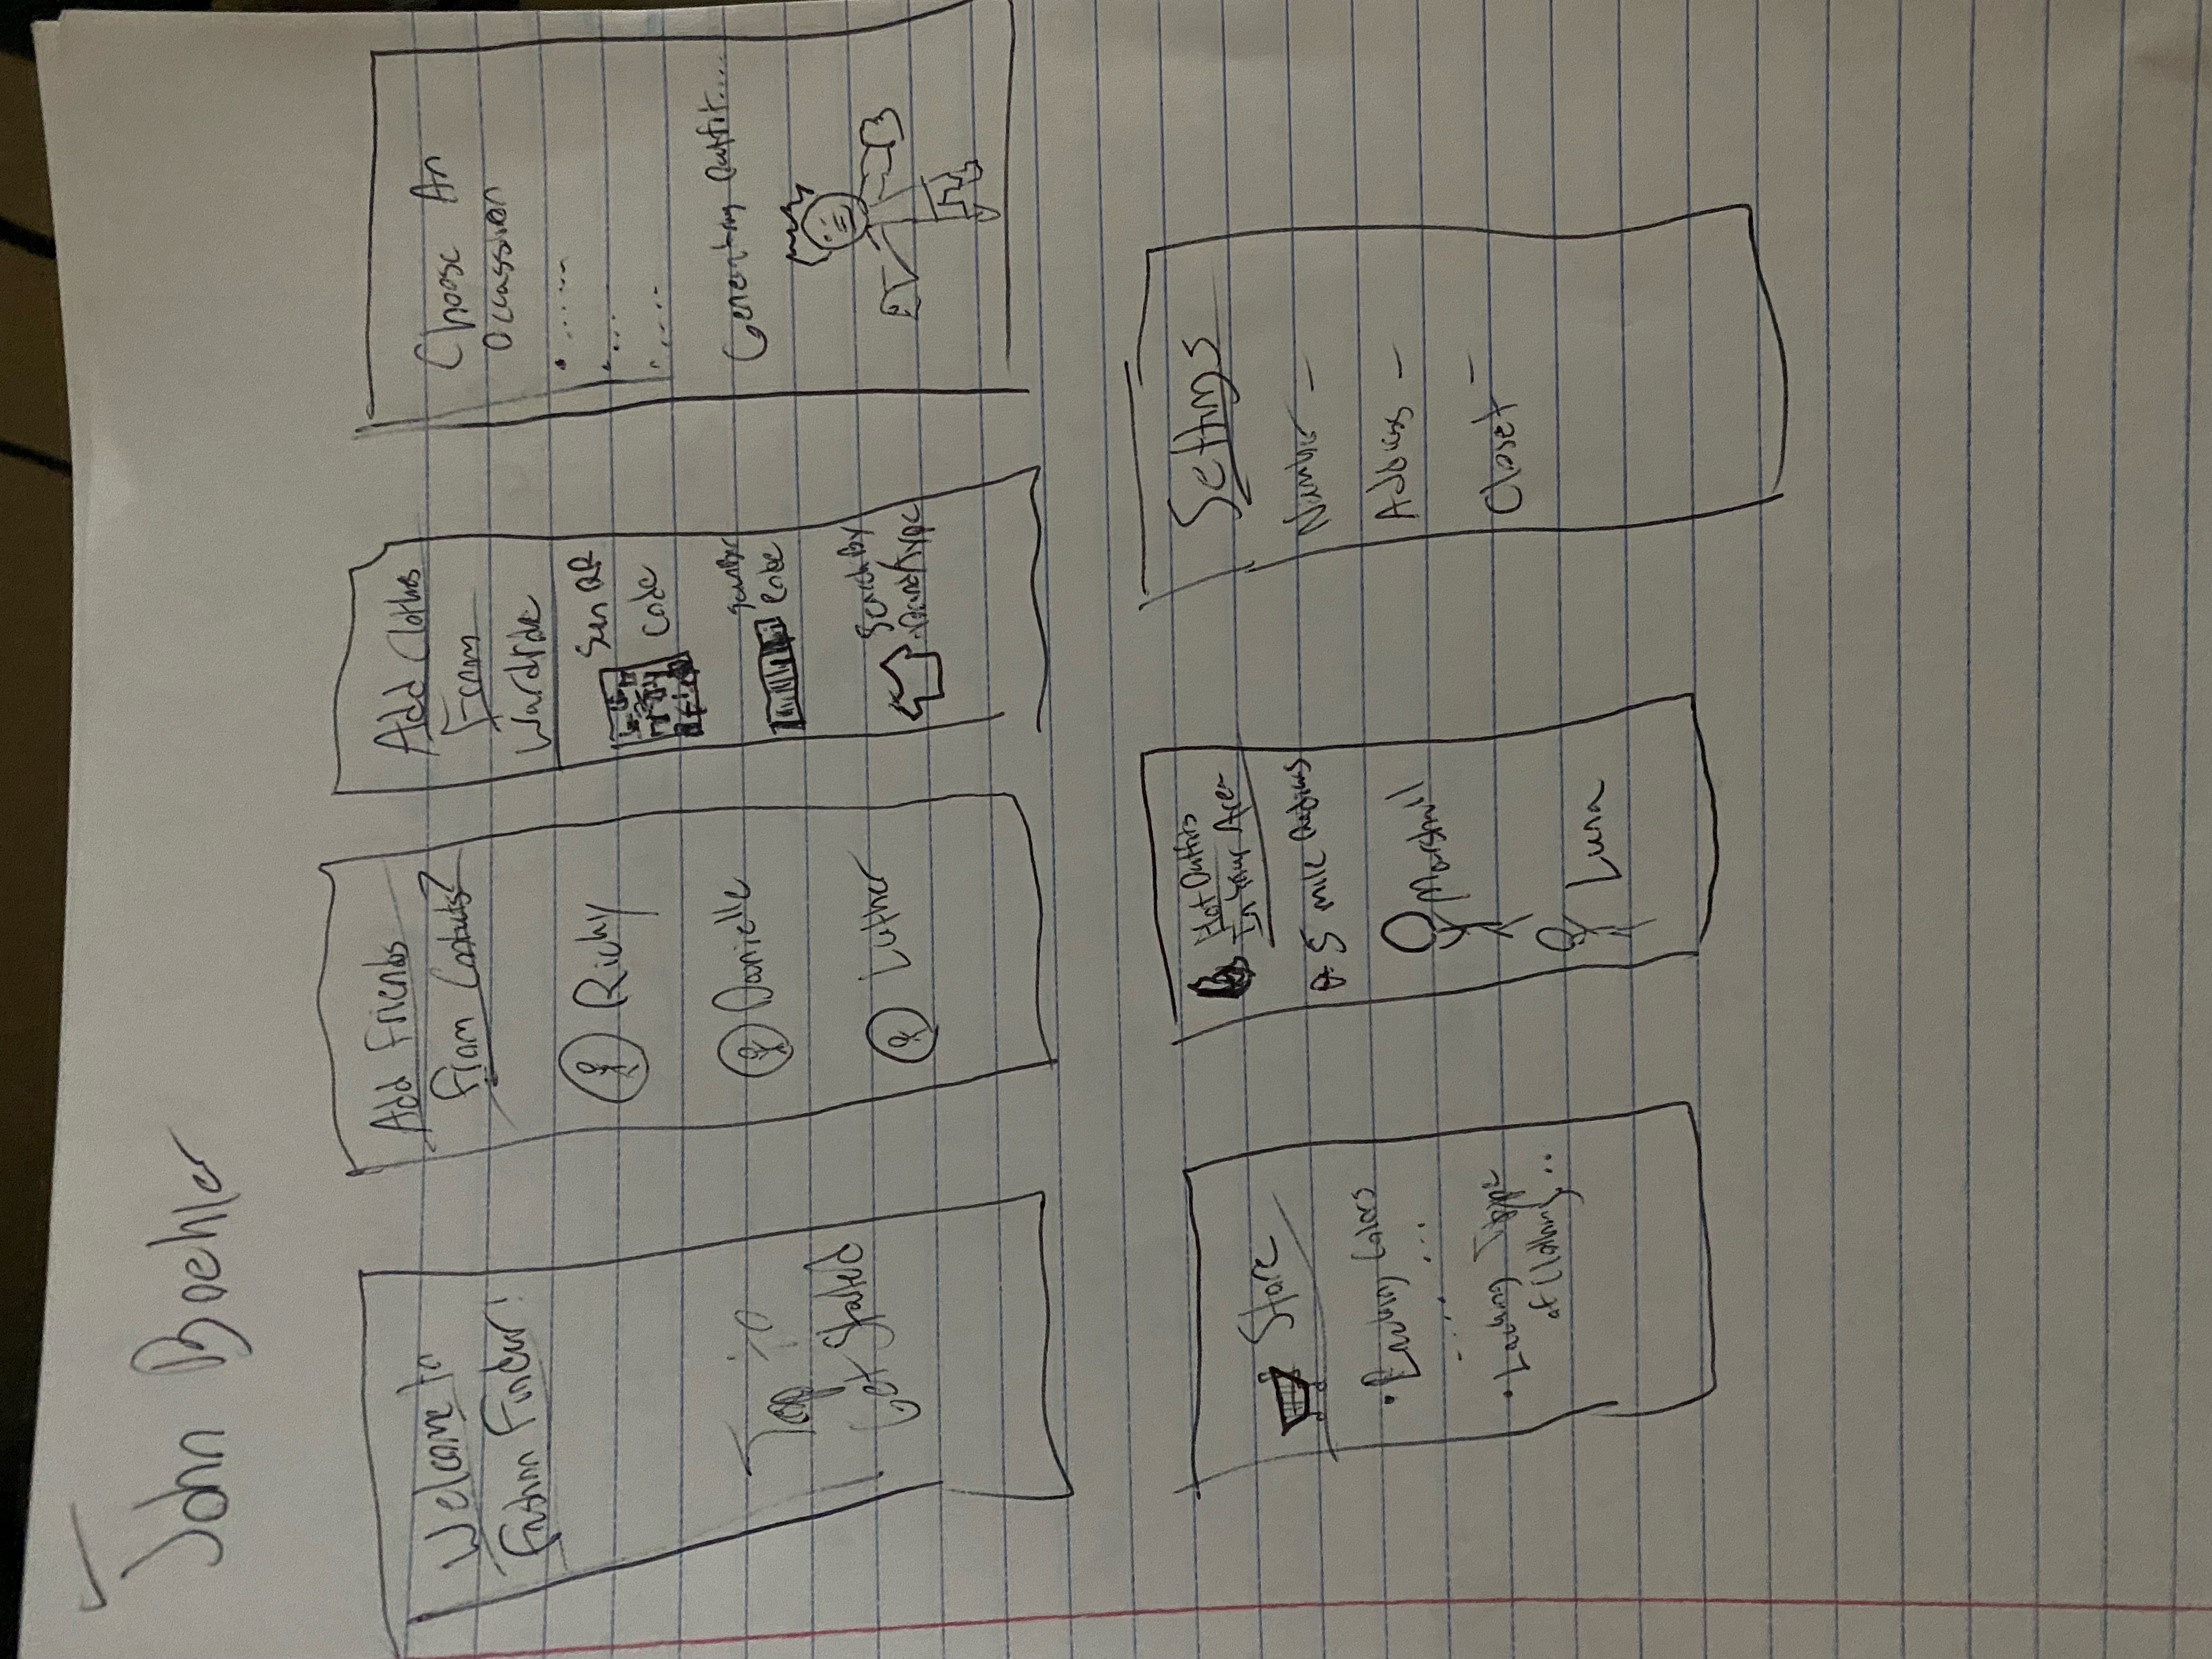 John Boehler
Welcome to
Fashion Finder!
Tap to
Get Started
Add Friends
From Contacts?
Richy
Danielle
Luther
Add Clothes
From
Wardrobe
Scan QR
Code
Scan Bar
Code
Search By
Brand/Type
Choose An
Occassion
Generating Outfit....
Store
Lacking Colors
Lacking Type
of Clothing...
Hot Outfits
In Your Area
5 mile Radius
Marshall
Luna
Settings
Number –
Address –
Closet –